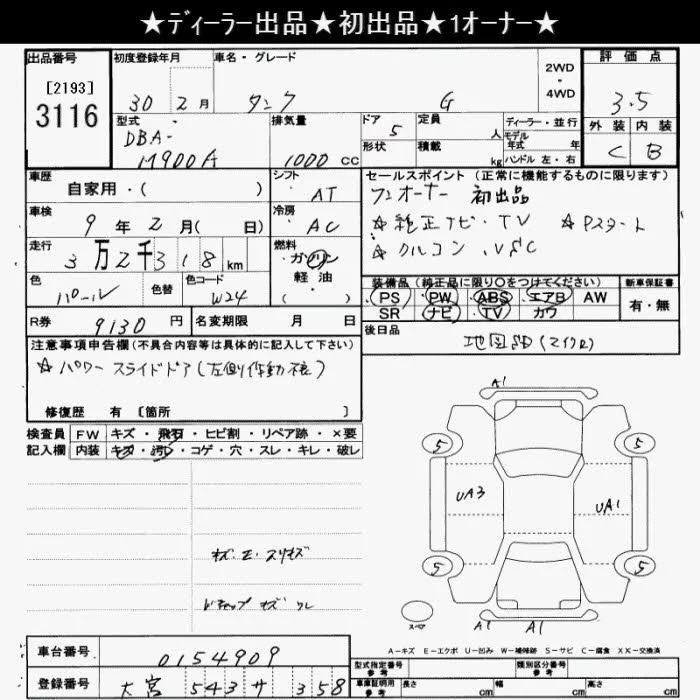 ★ディーラー出品★初出品★1オーナー★
出品番号
[2193]
3116
初度登録年月
30 2月
車名・グレード
タンク G
2WD
・
4WD
評価点
3.5
外装 内装
C B
型式
DBA-
M900A
排気量
1000 cc
ドア 5
形状
定員 人
積載 kg
ディーラー・並行
モデル
年式 年
ハンドル 左・右
車歴
自家用・( )
シフト
AT
車検
9年2月( 日)
冷房
AC
走行
3万2千318km
燃料
ガソリン
軽油
( )
色
パール
色替
色コード
W24
セールスポイント (正常に機能するものに限ります)
ワンオーナー 初出品
☆純正ナビ・TV ☆Pスタート
☆クルコン.VSC
装備品 (純正品に限り〇をつけてください)
PS・PW・ABS・エアB AW
SR ナビ・TV・カワ
新車保証書
有・無
後日品
地図SD(マイクロ)
R券 9130円
名変期限 月 日
注意事項申告欄(不具合内容等は具体的に記入して下さい)
☆パワースライドドア(左側作動不良)
修復歴 有 [箇所 ]
検査員
記入欄
FW キズ・飛石・ヒビ割・リペア跡・×要
内装 キズ・汚レ・コゲ・穴・スレ・キレ・破レ
キズ・エ・スリキズ
A1
5
5
UA3
UA1
5
5
スペア
A1
A1
A-キズ E-エクボ U-凹み W-補修跡 S-サビ C-腐食 XX-交換済
車台番号
0154909
登録番号
大宮 543 サ 358
型式指定番号
参考
類別区分番号
参考
車庫証明用
参考
長さ cm
幅 cm
高さ cm